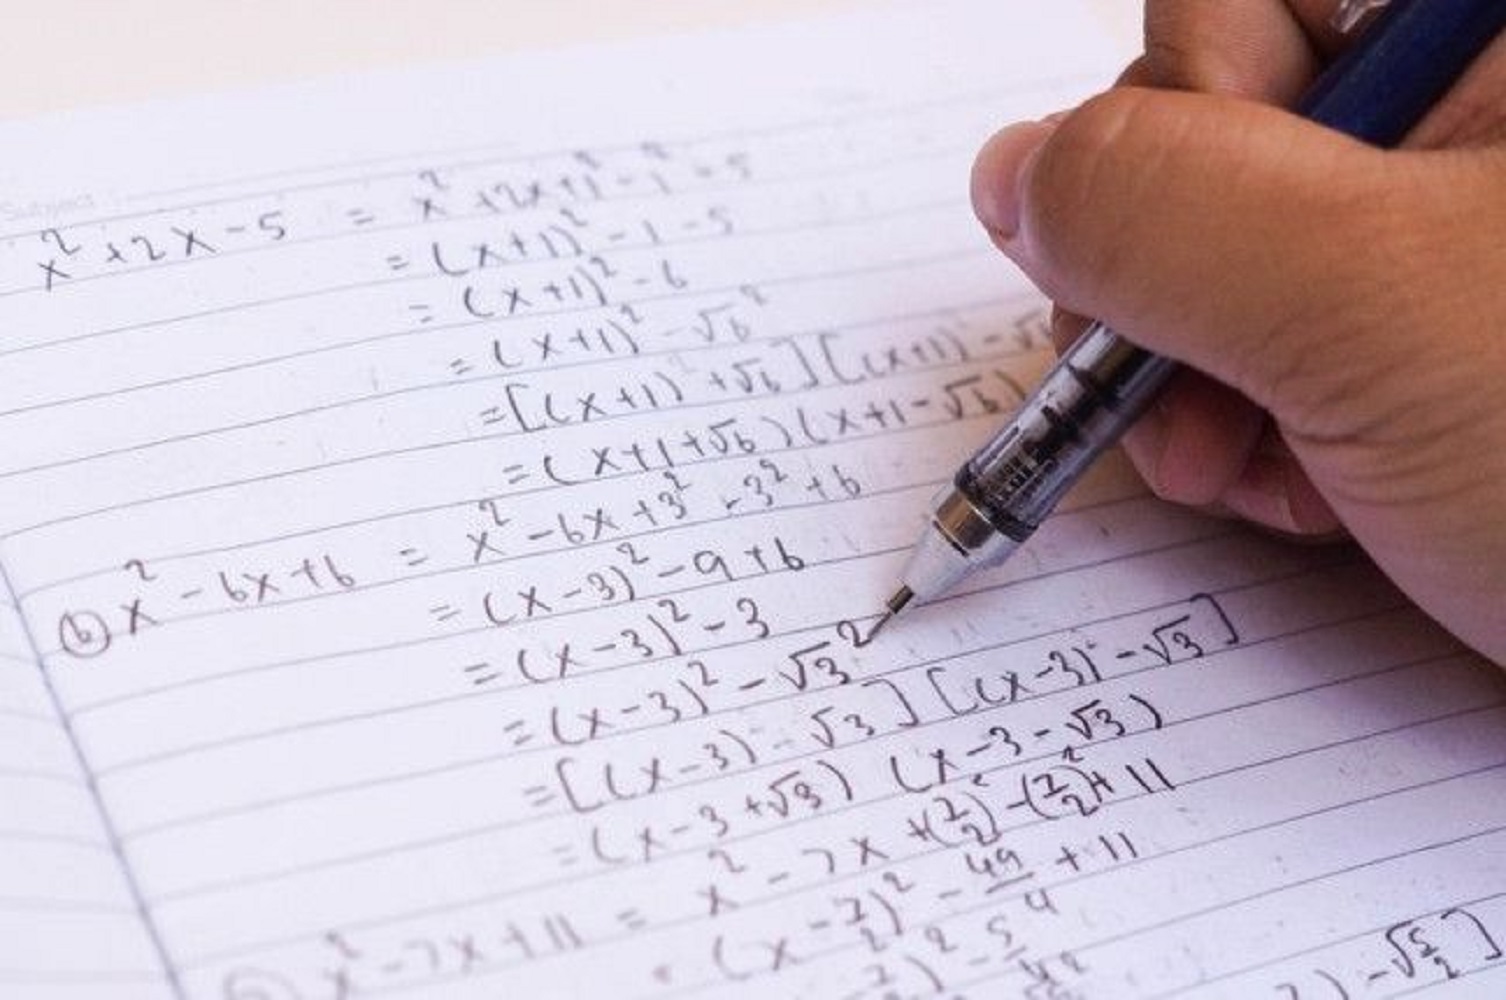 Subject
x² + 2x - 5 = x² + 2x + 1² - 1² - 5
= (x+1)² - 1 - 5
= (x+1)² - 6
= (x+1)² - √6²
= [(x+1) + √6] [(x+1) - √
= (x+1+√6) (x+1-√6)
(b) x² - 6x + 6 = x² - 6x + 3² - 3² + 6
= (x-3)² - 9 + 6
= (x-3)² - 3
= (x-3)² - √3²
= [(x-3) - √3] [(x-3) - √3]
= (x-3+√3) (x-3-√3)
x² - 7x + 11 = x² - 7x + (7/2)² - (7/2)² + 11
(x - 7/2)² - 49/4 + 11
)² - 5
) - √5/2]